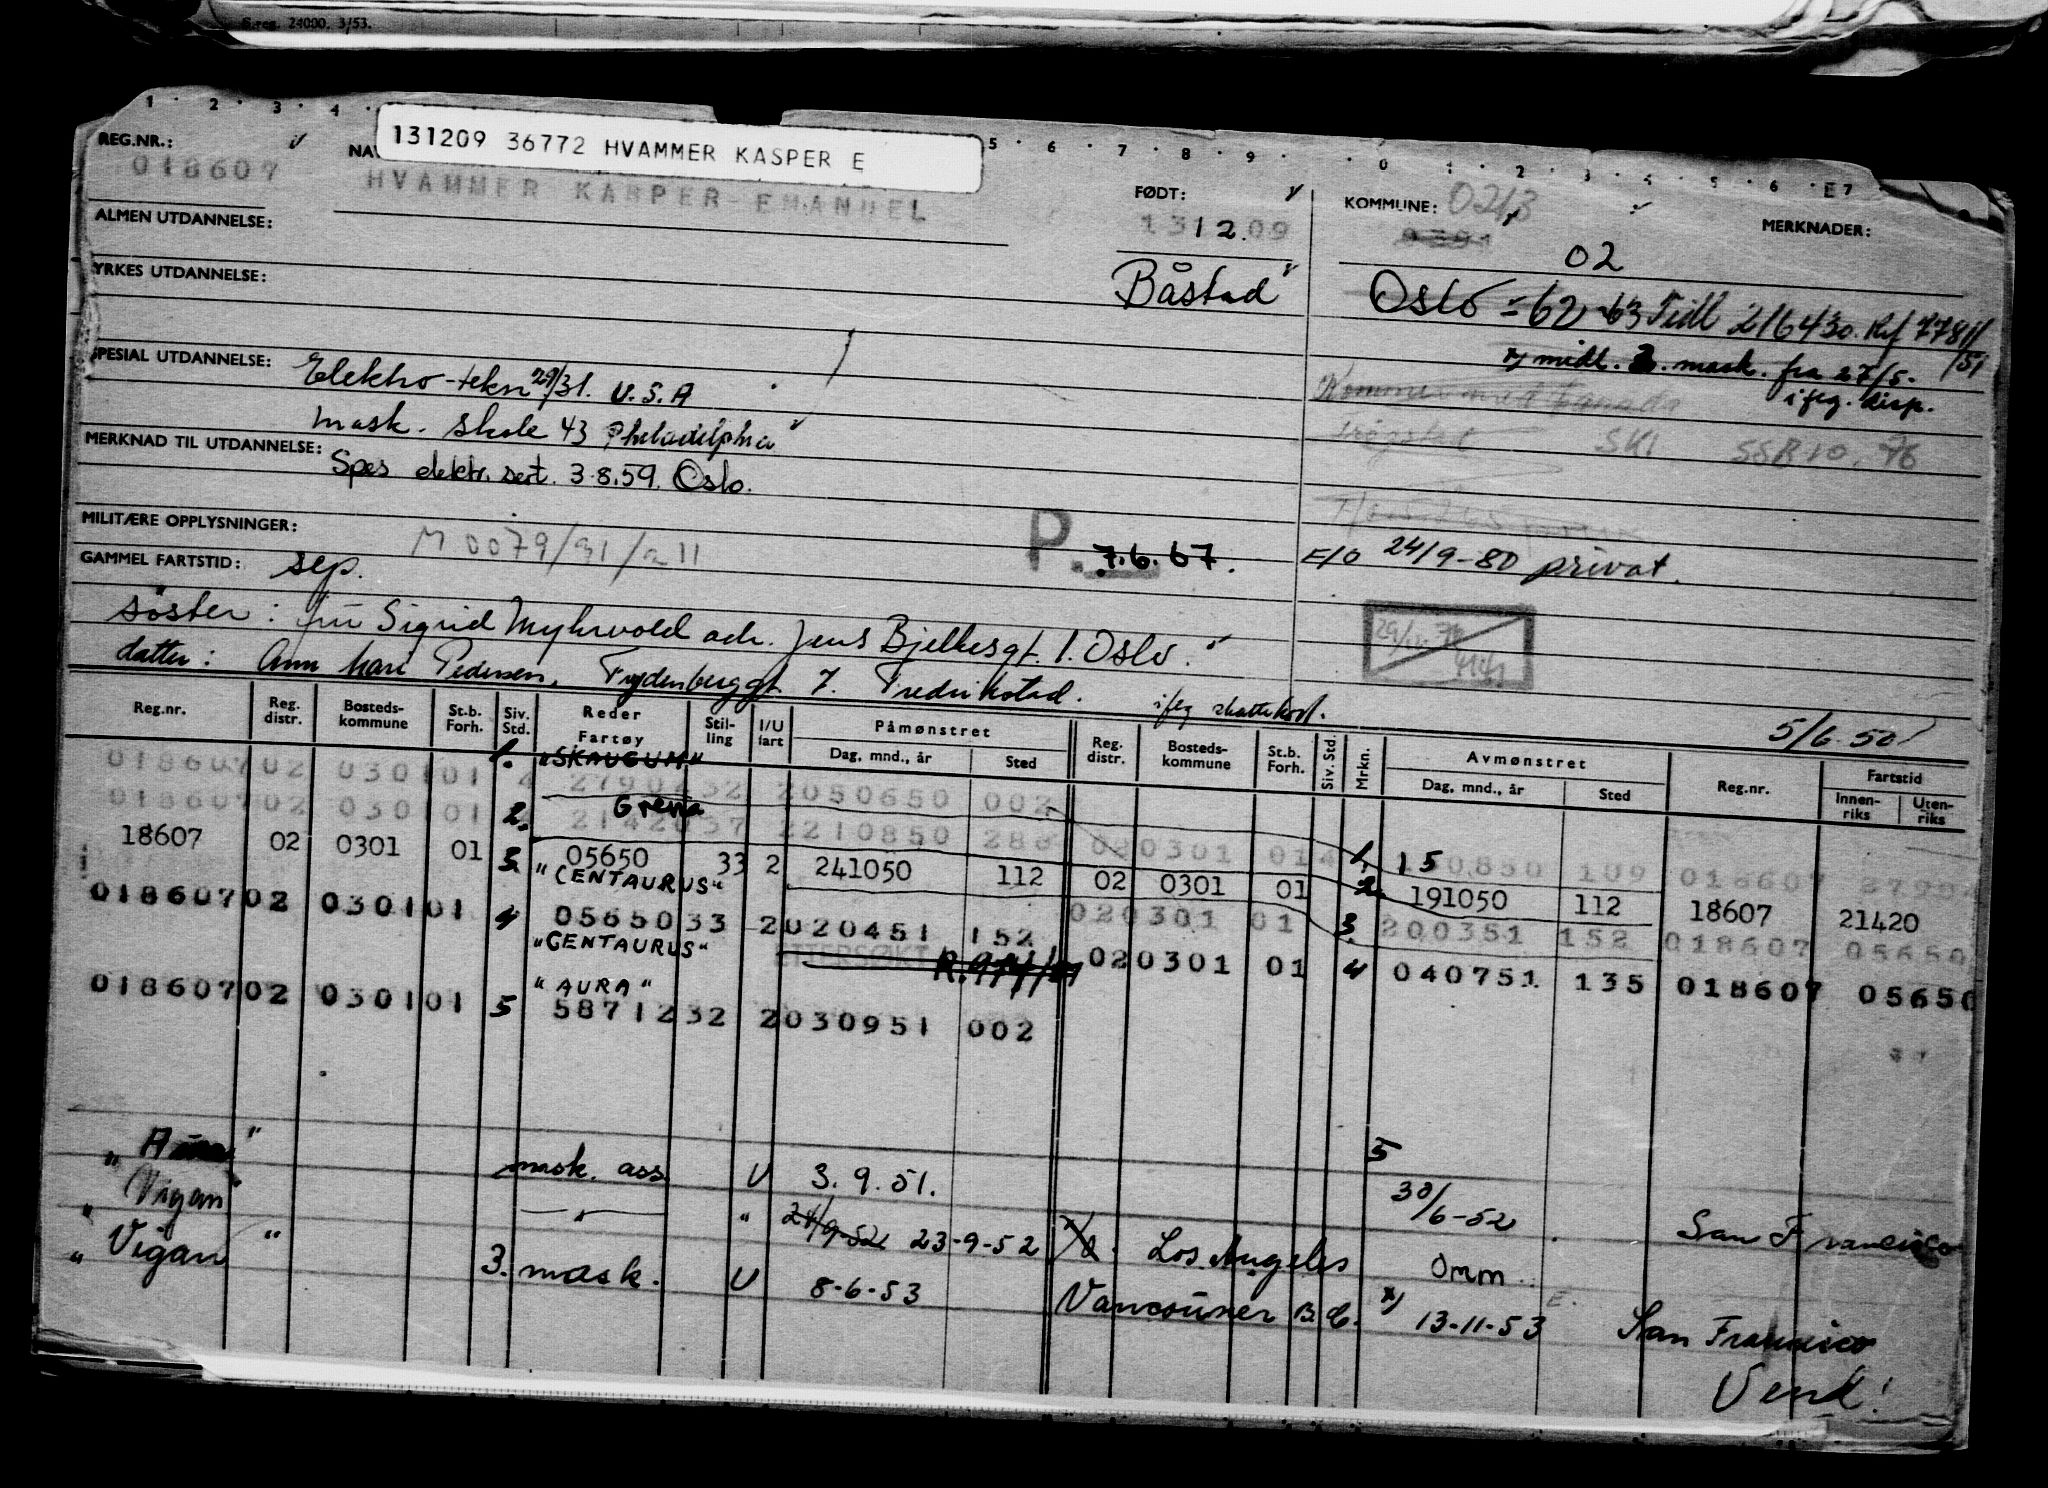 S.reg. 24000. 3/53.
1 · 2 · 3 · 4 · 5 · 6 · 7 · 8 · 9 · · 0 · 1 · 2 · 3 · 4 · 5 · 6 · E7
131209 36772 HVAMMER KASPER E
REG.NR.: FØDT: KOMMUNE: 0213 MERKNADER:
018607 HVAMMER KASPER EMANUEL 1312.09 02
ALMEN UTDANNELSE:
YRKES UTDANNELSE: Båstad Oslo -62 -63 Tidl 216430. Ref 77811/51
SPESIAL UTDANNELSE: Elektro-tekn 29/31. U.S.A x) midl. 2. mask. fra 27/5-
i flg. disp.
mask. skole 43 Philadelphia Trøgstad SKI SSB 10. 76
MERKNAD TIL UTDANNELSE: Spes elektr. sert. 3.8.59. Oslo.
MILITÆRE OPPLYSNINGER: M 0079/31/a 11 P. 7.6.67. E/O 24/9-80 privat.
GAMMEL FARTSTID: sep.
søster: fru Sigrid Myhrvold adr. Jens Bjelkesgt. 1. Oslo.
datter: Ann Mari Pedersen, Trydenberggt 7. Fredrikstad. iflg skattekort.
5/6.50
Reg.nr. Reg. distr. Bosteds-kommune St.b. Forh. Siv. Std. Reder Fartøy Stil-ling I/U fart Påmønstret Dag, mnd., år Sted Reg. distr. Bosteds-kommune St.b. Forh. Siv. Std. Mrkn. Avmønstret Dag, mnd., år Sted Reg.nr. Fartstid Innen-riks Uten-riks
1. "SKAUGUM"
018607 02 0301 01 4 27902 32 2 050650 002
2. Grena
018607 02 0301 01 21420 37 2 210850 288 02 0301 01 4 1. 150850 109 018607
18607 02 0301 01 3. 05650 33 2 241050 112 02 0301 01 2. 191050 112 18607 21420
"CENTAURUS"
018607 02 0301 01 4 05650 33 2 020451 152 02 0301 01 3. 200351 152 018607 05650
"CENTAURUS" ETTERSØKT 02 0301 01 4 040751 135 018607 05650
"AURA"
018607 02 0301 01 5 58712 32 2 030951 002
"Aura" mask. ass. U 3.9.51. 5 30/6-52 San Francisco
"Vigan" — " — " 24/9-52 23-9-52 Los Angeles Omm.
"Vigan" 3. mask. U 8-6-53 Vancouver B.C. x) 13-11-53 San Francisco
Vend!